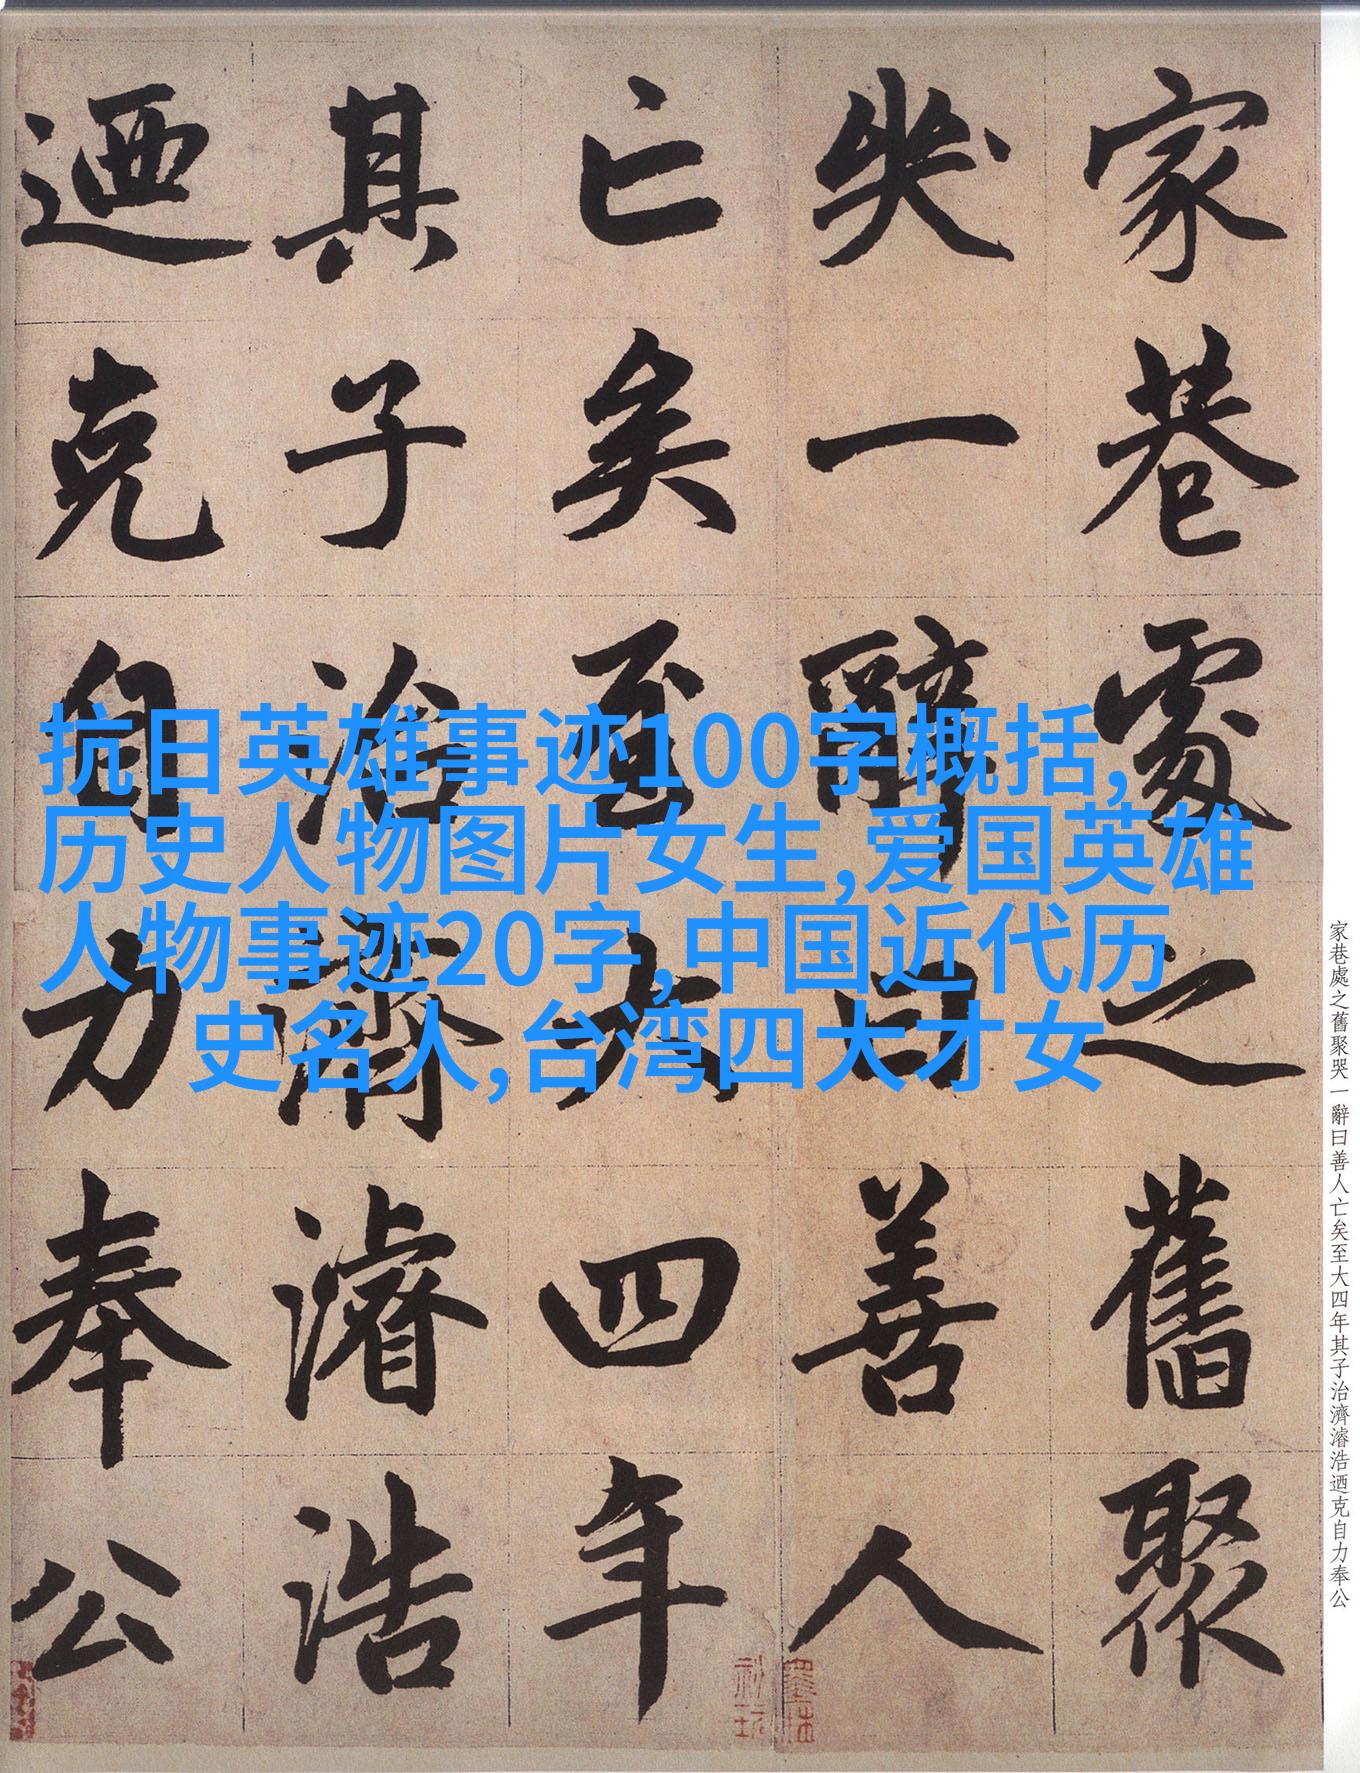 家巷處之舊聚
哭一辭曰善人
亡矣至大四年
其子治濟濬浩
迺克自力奉公
抗日英雄事迹100字概括,
历史人物图片女生,爱国英雄
人物事迹20字,中国近代历
史名人,台湾四大才女
家巷處之舊聚哭一辭曰善人亡矣至大四年其子治濟濬浩迺克自力奉公